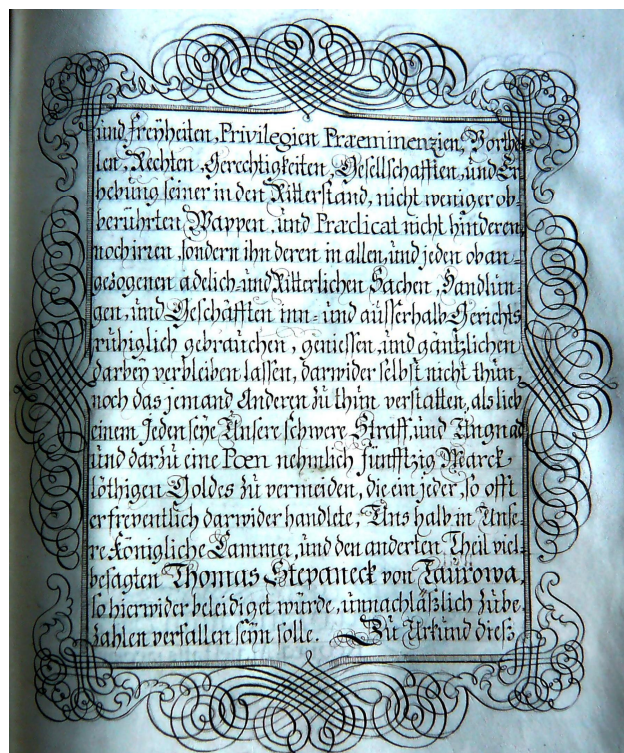 und Freÿheiten, Privilegien Præeminenzien, Borthei
len, Rechten, Gerechtigkeiten, Gesellschafften, und Er
hebung seiner in den Ritterstand, nicht weniger ob-
berührten Wappen, und Prædicat nicht hinderen,
noch irren, sondern ihn deren in allen, und jeden oban-
gezogenen adelich- und Ritterlichen Sachen, Handlun-
gen, und Geschäfften inn- und ausserhalb Gerichts
ruhiglich gebrauchen, geniessen, und gäntzlichen
darbeÿ verbleiben lassen, darwider selbst nicht thun,
noch das jemand Anderen zu thun verstatten, als lieb
einem Jeden seÿe Unsere schwere Straff, und Ungnad
und darzu eine Pœn nehmlich Fünfftzig Marck
löthigen Goldes zu vermeiden, die ein jeder, so offt
er freventlich darwider handlete, Uns halb in Unse-
re Königliche Cammer, und den anderten Theil viel-
besagten Thomas Stepaneck von Taurowa,
so hierwider beleidiget würde, unnachläßlich zube
zahlen verfallen seÿn solle. Zu Urkund dieß